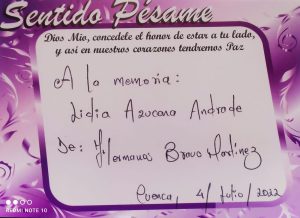 Sentido Pésame
Dios Mio, concedele el honor de estar a tu lado,
y asi en nuestros corazones tendremos Paz
A la memoria:
Lidia Azucena Andrade
De: Hermanas Bravo Martinez
Cuenca, 4/Julio/2022
REDMI NOTE 10